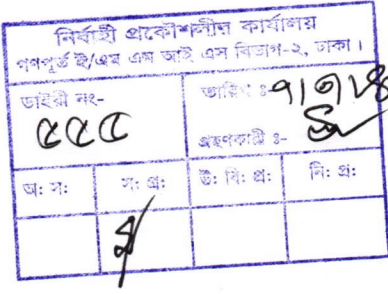 নির্বাহী প্রকৌশলীর কার্যালয়
গণপূর্ত ই/এম এম আই এস বিভাগ-২, ঢাকা।
ডাইরী নং-
৫৫৫
তারিখ ঃ-
গ্রহণকারী ঃ-
অঃ সঃ
সঃ প্রঃ
উঃ বিঃ প্রঃ
নিঃ প্রঃ